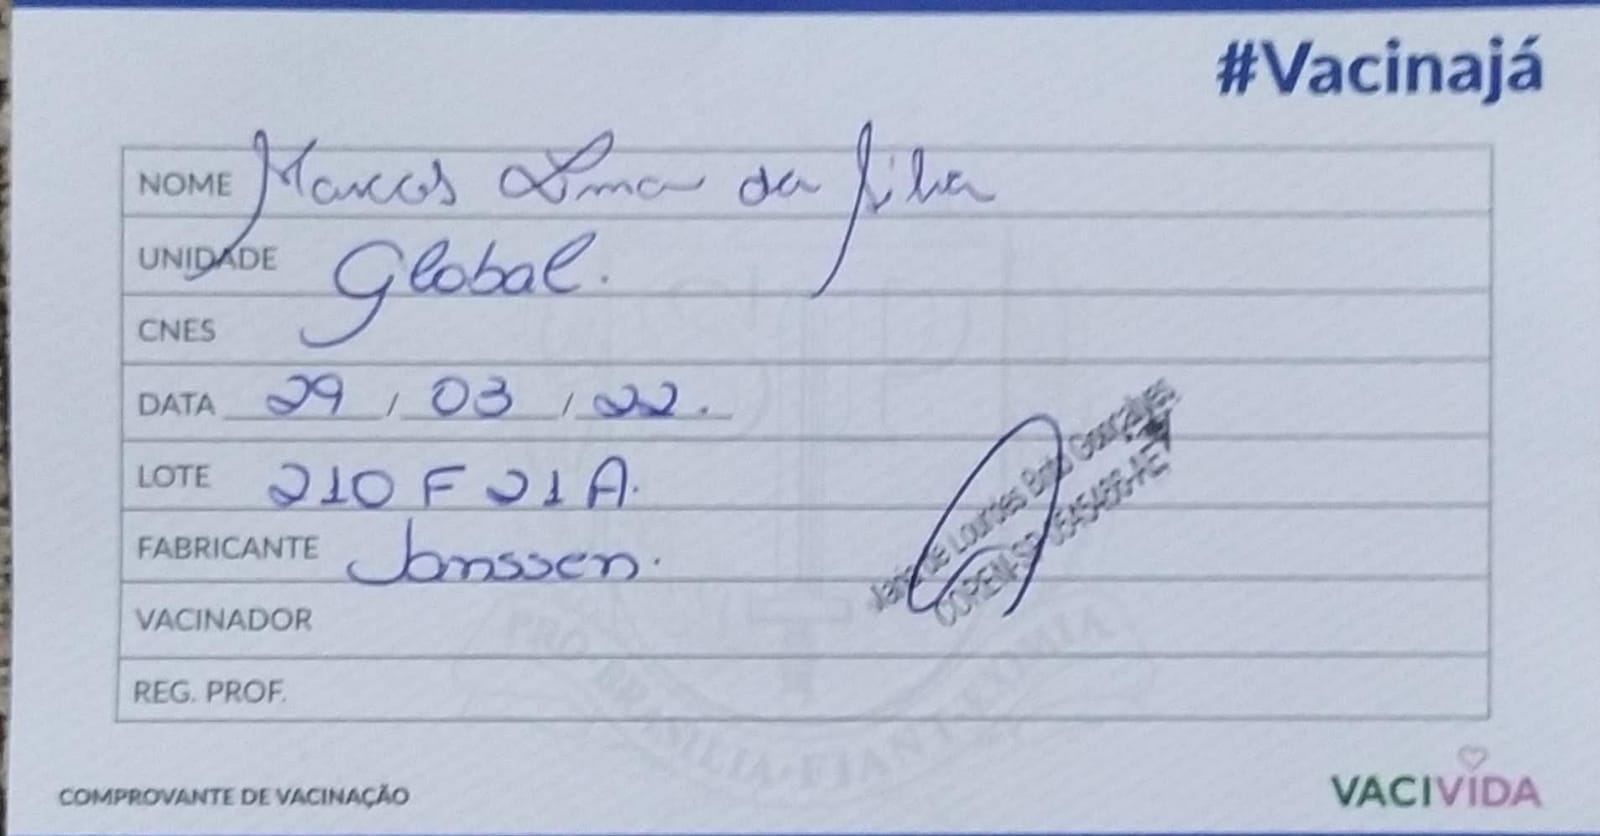 #Vacinajá
NOME Marcos Lima da Silva
UNIDADE Global.
CNES
DATA 29 / 03 / 22.
LOTE 210F21A.
FABRICANTE Janssen.
VACINADOR
REG. PROF.
de Lourdes Gonçalves
COREN-SP
PRO BRASILIA FIANT EXIMIA
COMPROVANTE DE VACINAÇÃO
VACIVIDA